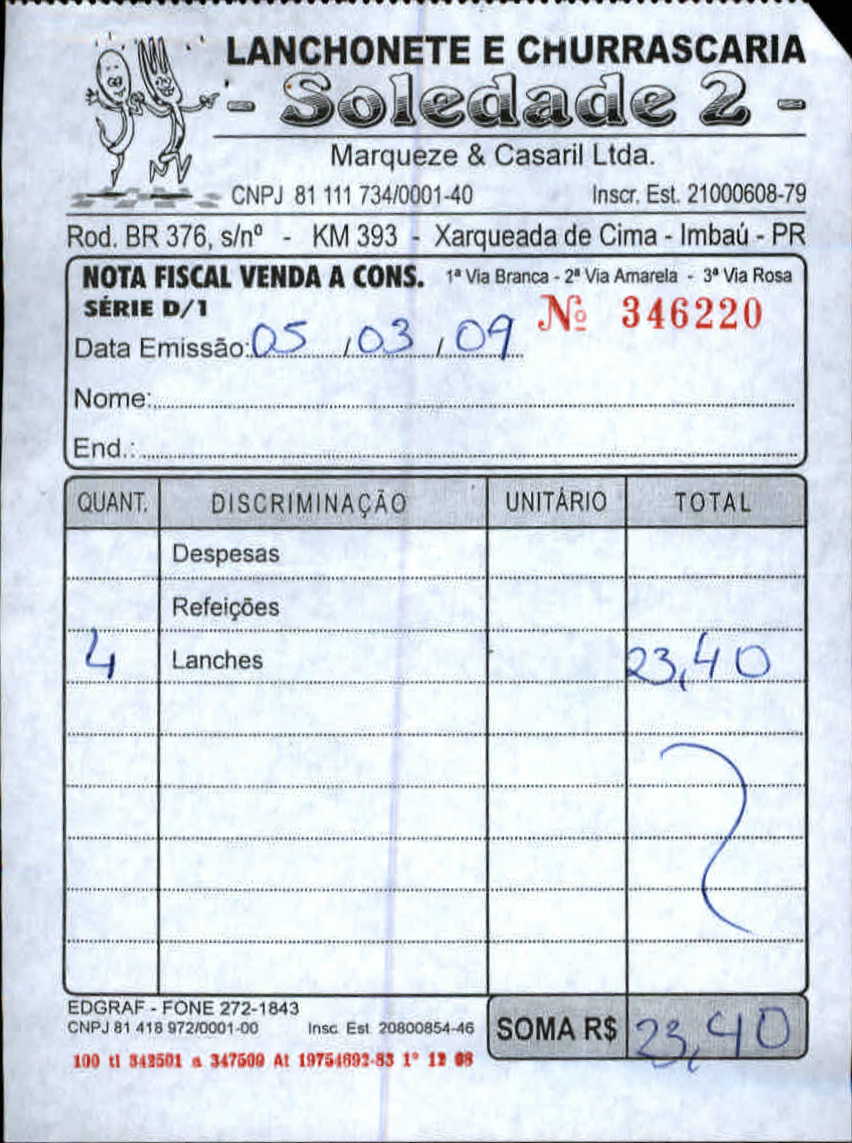 LANCHONETE E CHURRASCARIA
- Soledade 2 -
Marqueze & Casaril Ltda.
CNPJ 81 111 734/0001-40 Inscr. Est. 21000608-79
Rod. BR 376, s/nº - KM 393 - Xarqueada de Cima - Imbaú - PR
NOTA FISCAL VENDA A CONS. 1ª Via Branca - 2ª Via Amarela - 3ª Via Rosa
SÉRIE D/1 Nº 346220
Data Emissão: 05 / 03 / 09
Nome:
End.:
QUANT. DISCRIMINAÇÃO UNITÁRIO TOTAL
Despesas
Refeições
4 Lanches 23,40
EDGRAF - FONE 272-1843
CNPJ 81 418 972/0001-00 Insc. Est. 20800854-46 SOMA R$ 23,40
100 tl 342501 a 347500 At 19754692-83 1º 12 08